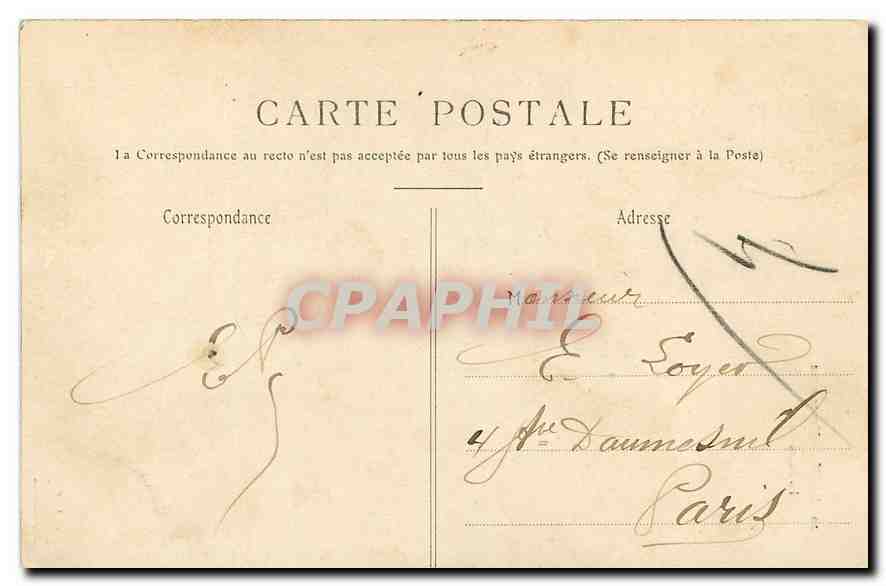 CARTE POSTALE
La Correspondance au recto n'est pas acceptée par tous les pays étrangers. (Se renseigner à la Poste)
Correspondance
Adresse
CPAPHIL
Monsieur
E. Loyer
4 Ave Daumesnil
Paris